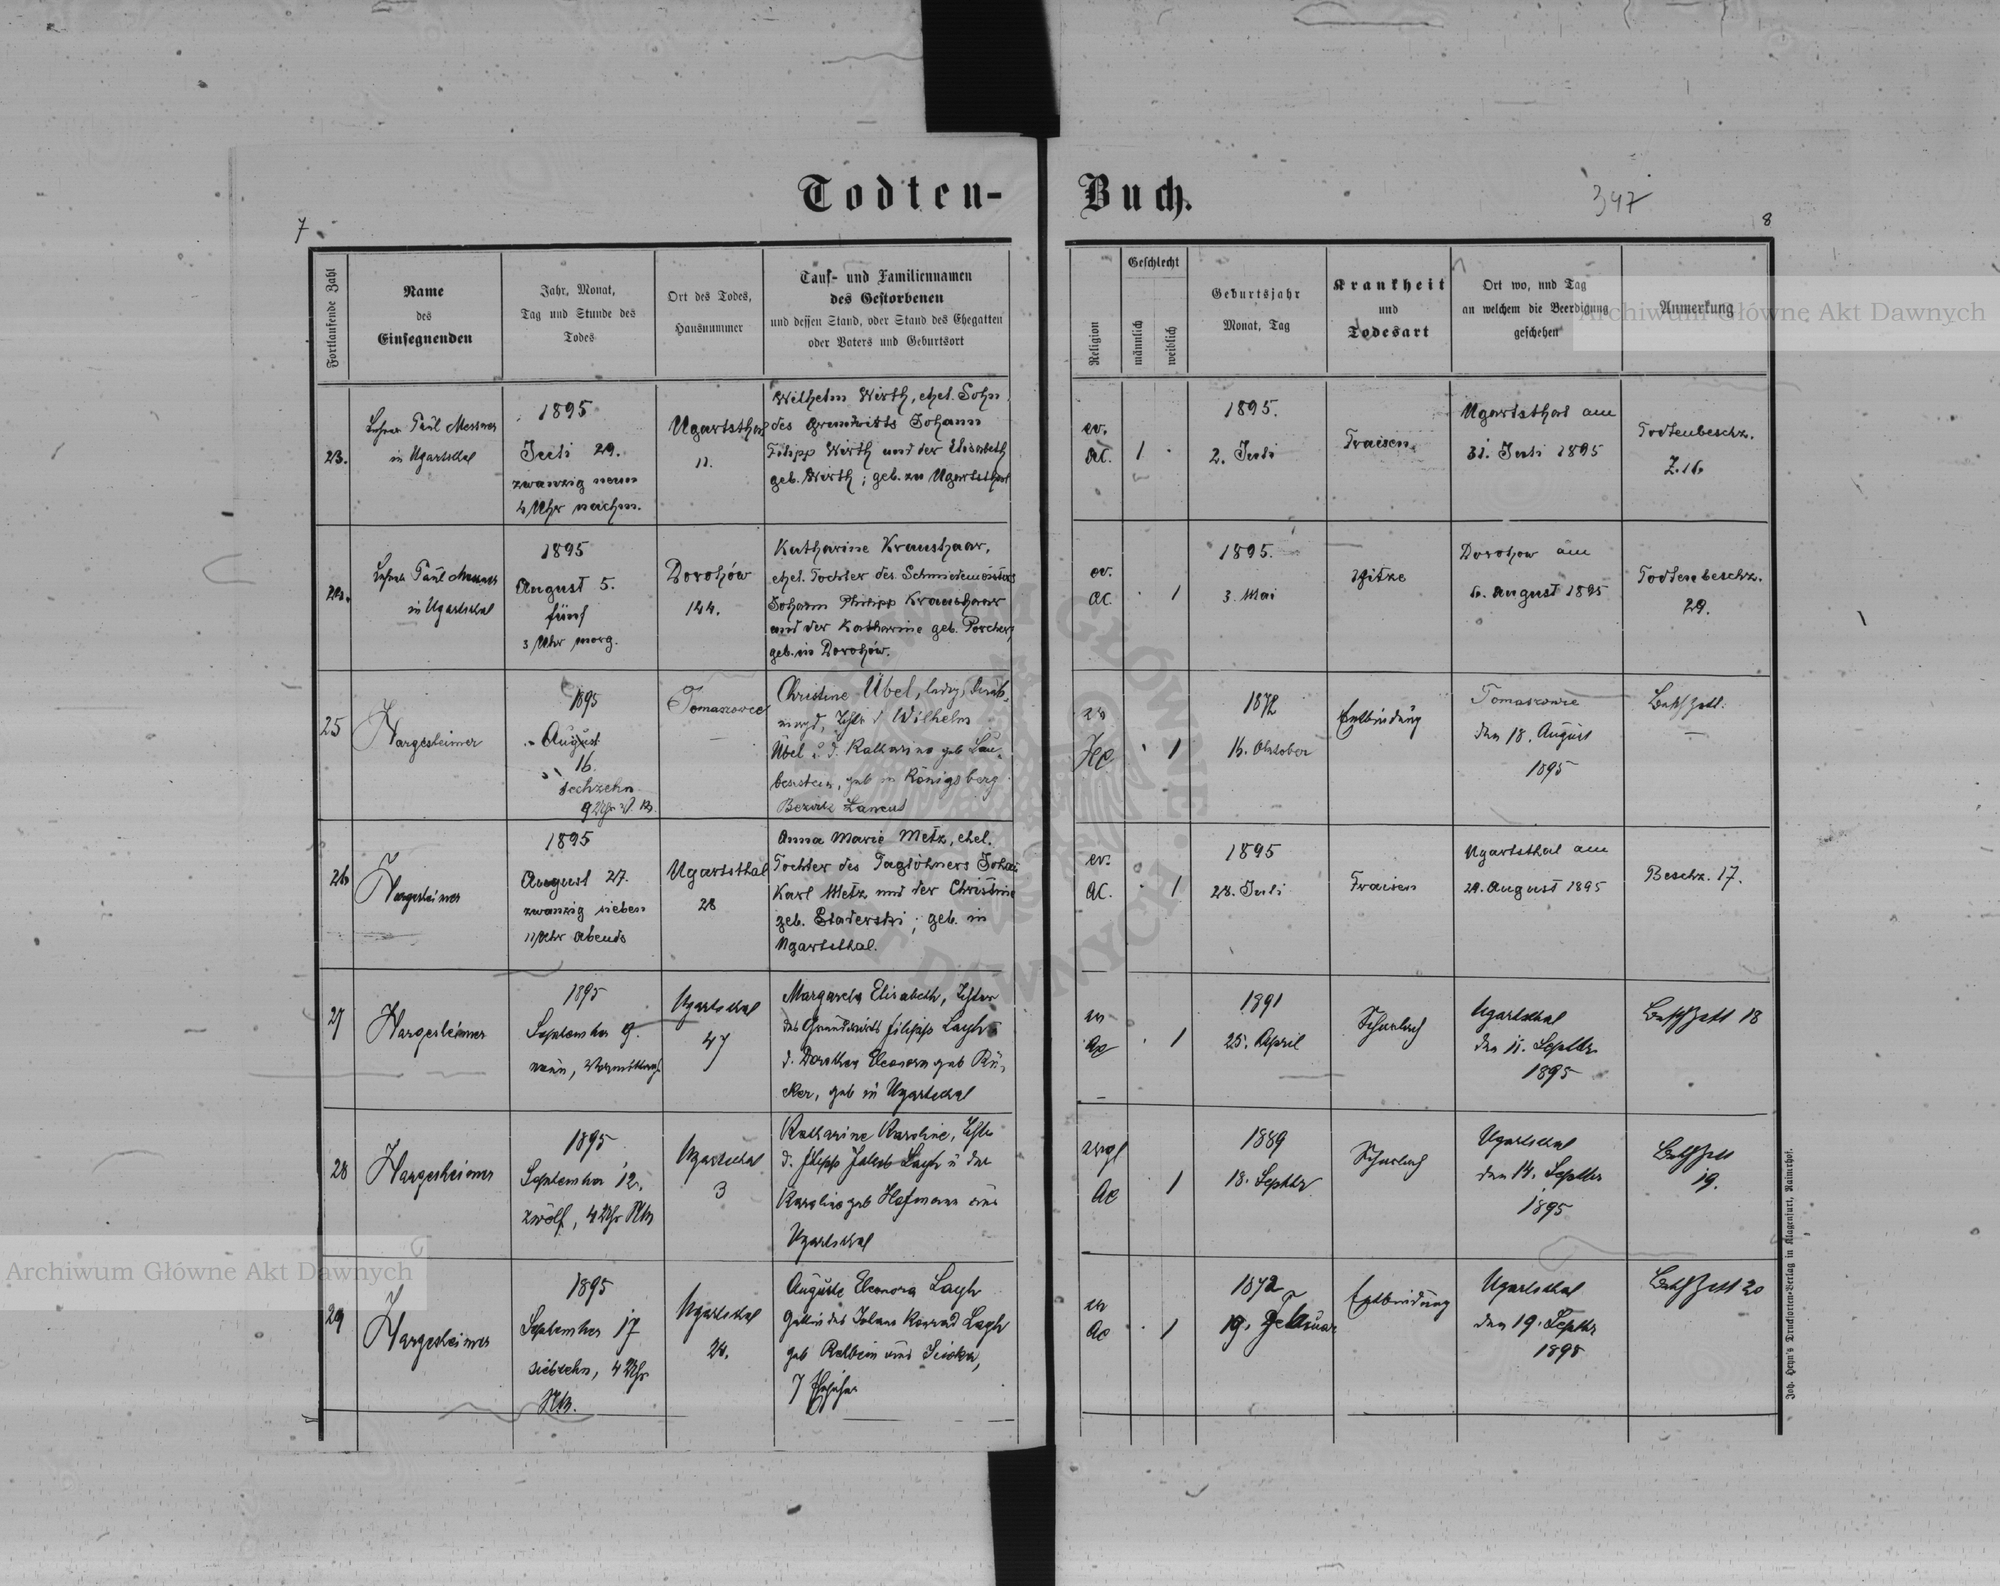 Todten-Buch.
347
7
8
Fortlaufende Zahl
Name
des
Einsegnenden
Jahr, Monat,
Tag und Stunde des
Todes
Ort des Todes,
Hausnummer
Tauf- und Familiennamen
des Gestorbenen
und dessen Stand, oder Stand des Ehegatten
oder Vaters und Geburtsort
Religion
Geschlecht
männlich
weiblich
Geburtsjahr
Monat, Tag
Krankheit
und
Todesart
Ort wo, und Tag
an welchem die Beerdigung
geschehen
Anmerkung
23.
Lehrer Paul Messner
in Ugartsthal
1895
Juli 29.
zwanzig neun
4 Uhr nachm.
Ugartsthal
11.
Wilhelm Wirth, ehel. Sohn
des Grundwirts Johann
Filipp Wirth und der Elisabeth
geb. Wirth; geb. zu Ugartsthal
ev.
AC.
1
1895.
2. Juli
Fraisen
Ugartsthal am
31. Juli 1895
Todtenbeschz.
Z. 16
24.
Lehrer Paul Messner
in Ugartsthal
1895
August 5.
fünf
3 Uhr morg.
Dorohów
144.
Katharine Kraushaar,
ehel. Tochter des Schmiedemeisters
Johann Philipp Kraushaar
und der Katharine geb.
geb. in Dorohów.
ev.
AC.
1
1895.
3. Mai
Hitze
Dorohow am
6. August 1895
Todtenbeschz.
29.
25
Hargesheimer
1895
August
16.
sechzehn
9 Uhr V. M.
Tomaszowce
Christine Übel, ledig, Dienst-
magd, Tchtr d. Wilhelm
Übel u. d. Katharina geb Lau-
benstein, geb in Königsberg
Bezirk Lancut
ev
HC
1
1872
16. Oktober
Entbindung
Tomaszowce
den 18. August
1895
26
Hargesheimer
1895
August 27.
zwanzig sieben
11 Uhr Abends
Ugartsthal
28
Anna Marie Metz, ehel.
Tochter des Taglöhners Johan
Karl Metz und der Christine
geb. Staderski; geb. in
Ugartsthal.
ev.
AC.
1
1895
28. Juli
Fraisen
Ugartsthal am
29. August 1895
Beschz. 17.
27
Hargesheimer
1895
September 9.
neun, Vormittags
Ugartsthal
47
Margareta Elisabeth, Tchter
des Grundwirts Filipp
d. Dorothea Eleonora geb Rü-
cker, geb in Ugartsthal
ev
AC
1
1891
25. April
Scharlach
Ugartsthal
den 11. Septbr
1895
18
28
Hargesheimer
1895
September 12.
zwölf, 4 Uhr NM
Ugartsthal
3
Katharine Karoline, Tchtr
d. Filipp Jakob u der
Karoline geb Hofmann aus
Ugartsthal
evgl
AC
1
1889
18. Septbr
Scharlach
Ugartsthal
den 14. Septbr
1895
19.
29
Hargesheimer
1895
September 17
siebzehn, 4 Uhr
NM.
Ugartsthal
24.
Auguste Eleonora
Gattin des Johann Konrad
geb
ev
AC
1
1872
19. Februar
Entbindung
Ugartsthal
den 19. Septbr
1895
20
Joh. Heyn's Drucksorten-Verlag in Klagenfurt, Rainerhof.
Archiwum Główne Akt Dawnych
Archiwum Główne Akt Dawnych